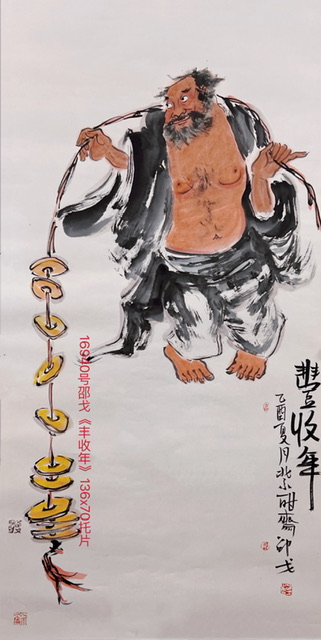 豊收年
乙酉夏月北京酣齋邵戈
16970号邵戈《丰收年》136x70托片